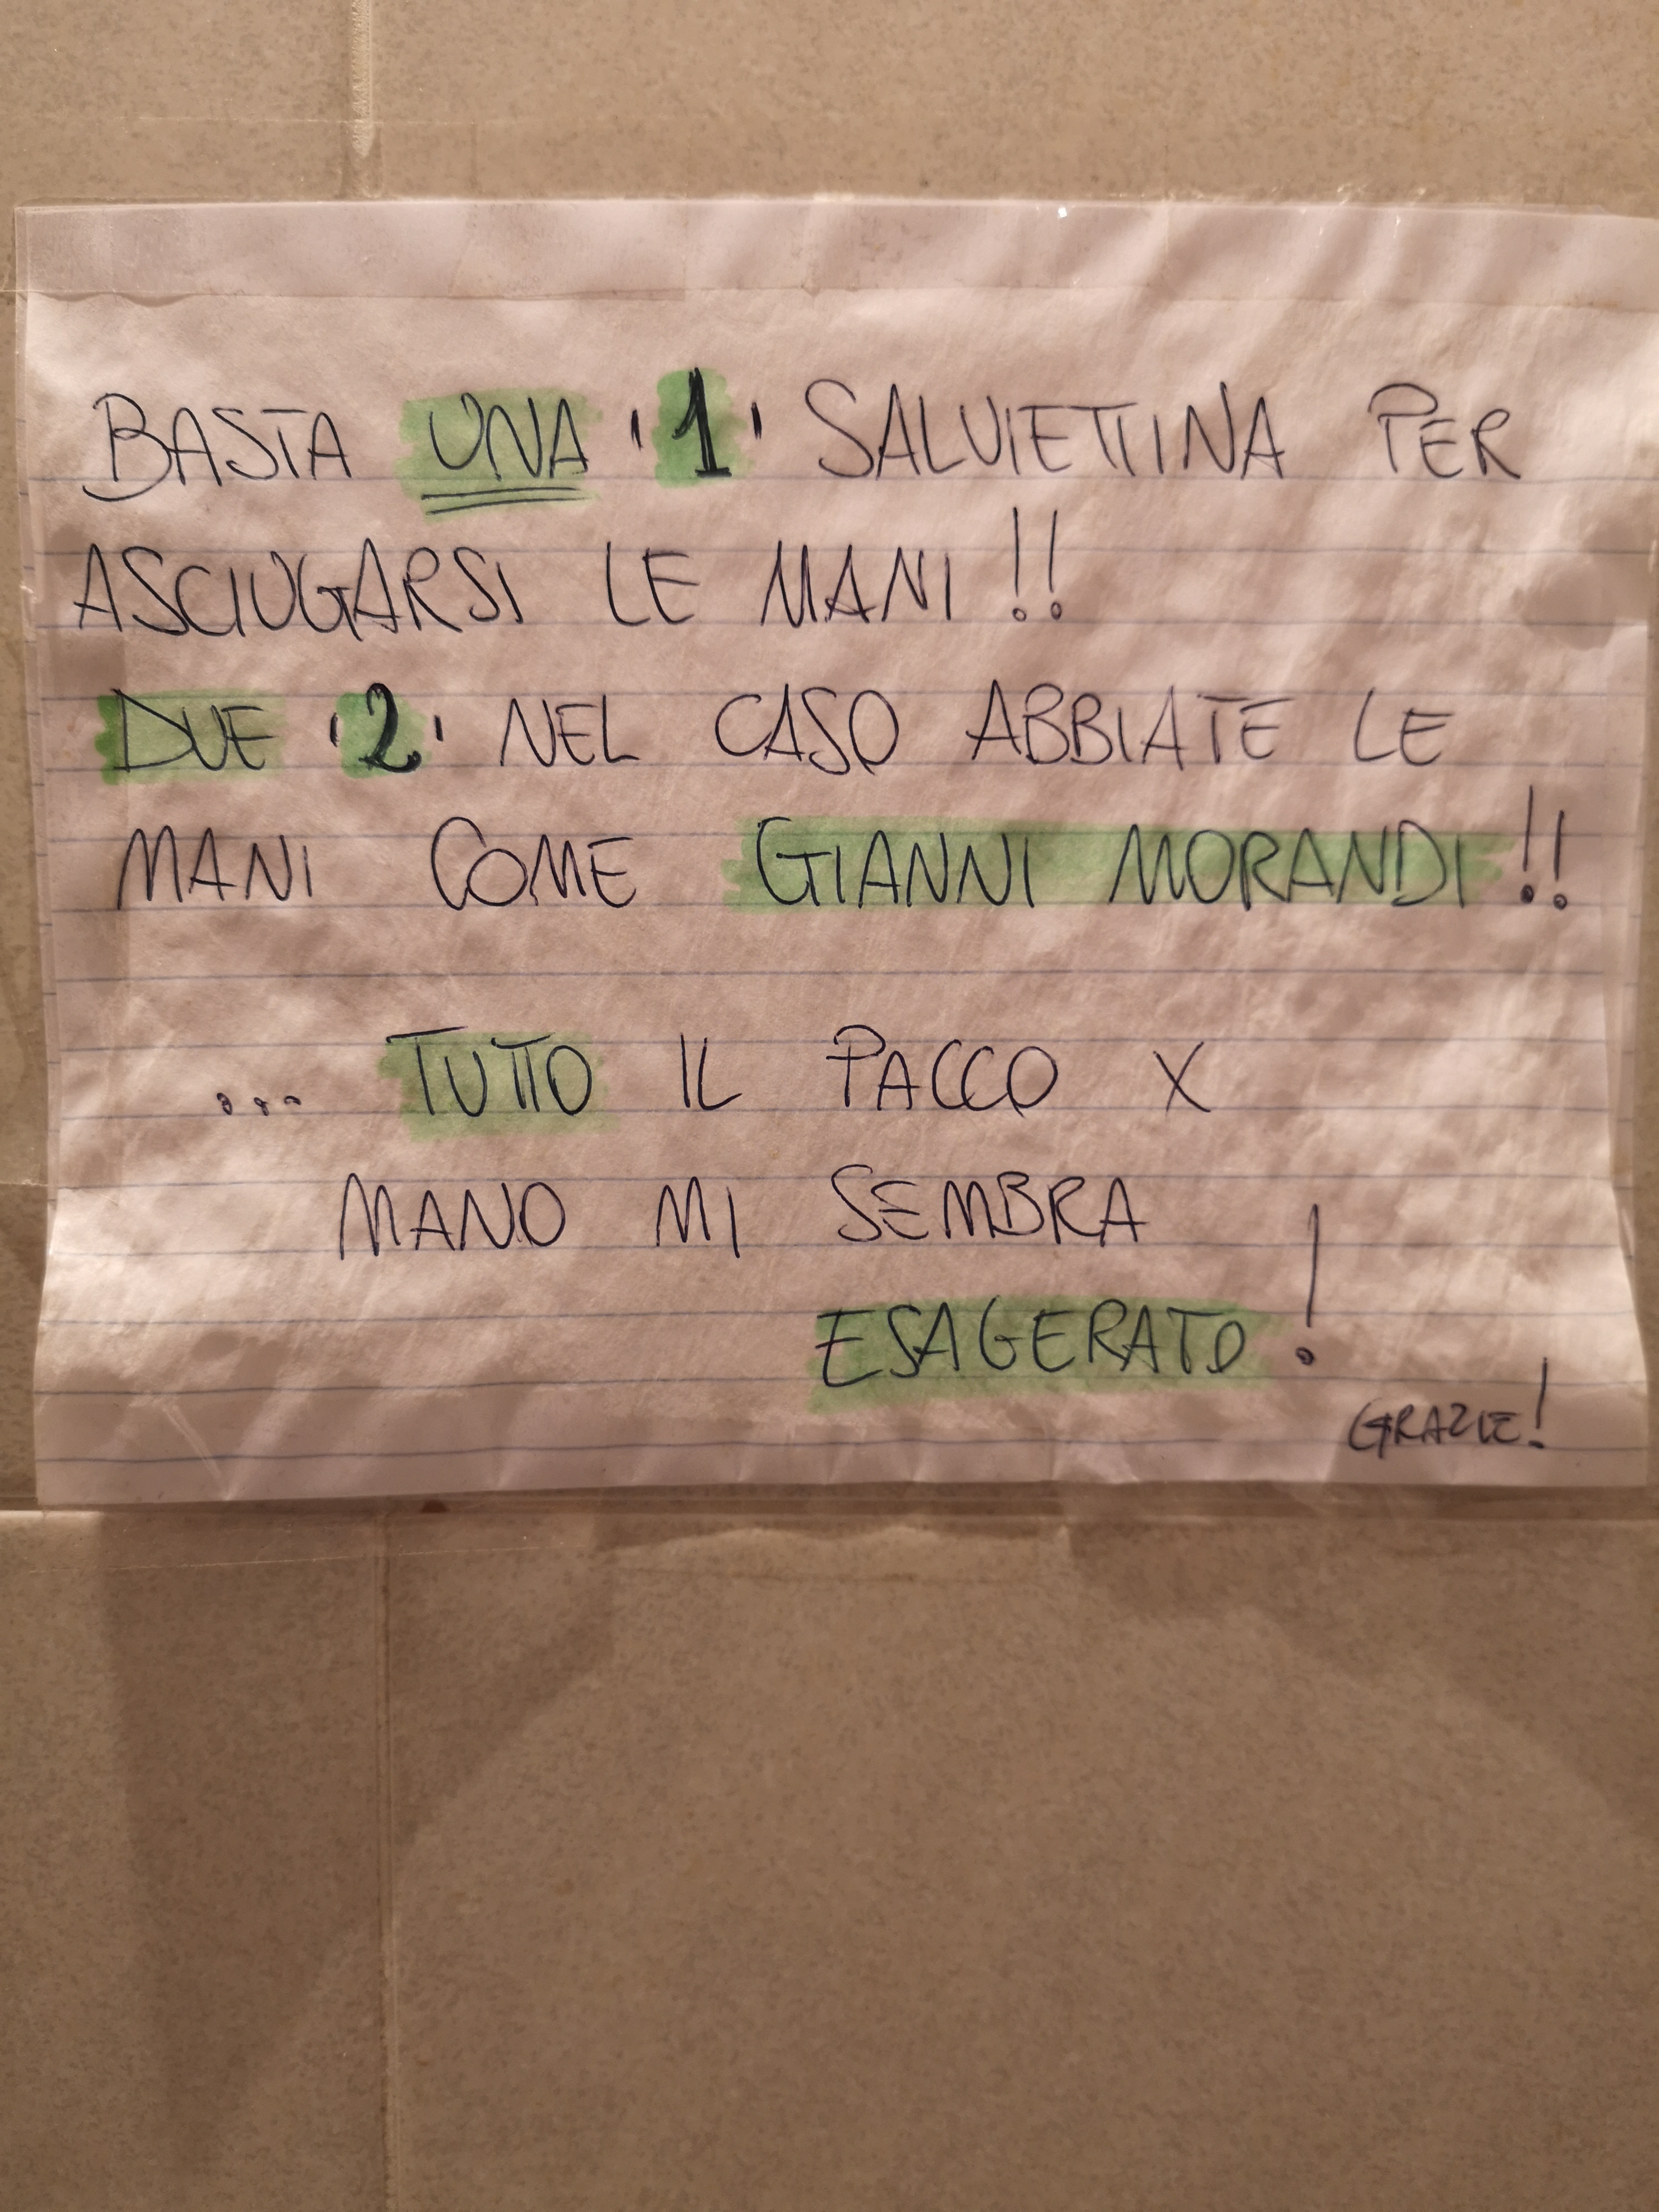 BASTA UNA '1' SALVIETTINA PER
ASCIUGARSI LE MANI!!
DUE '2' NEL CASO ABBIATE LE
MANI COME GIANNI MORANDI!!
... TUTTO IL PACCO X
MANO MI SEMBRA
ESAGERATO!
GRAZIE!